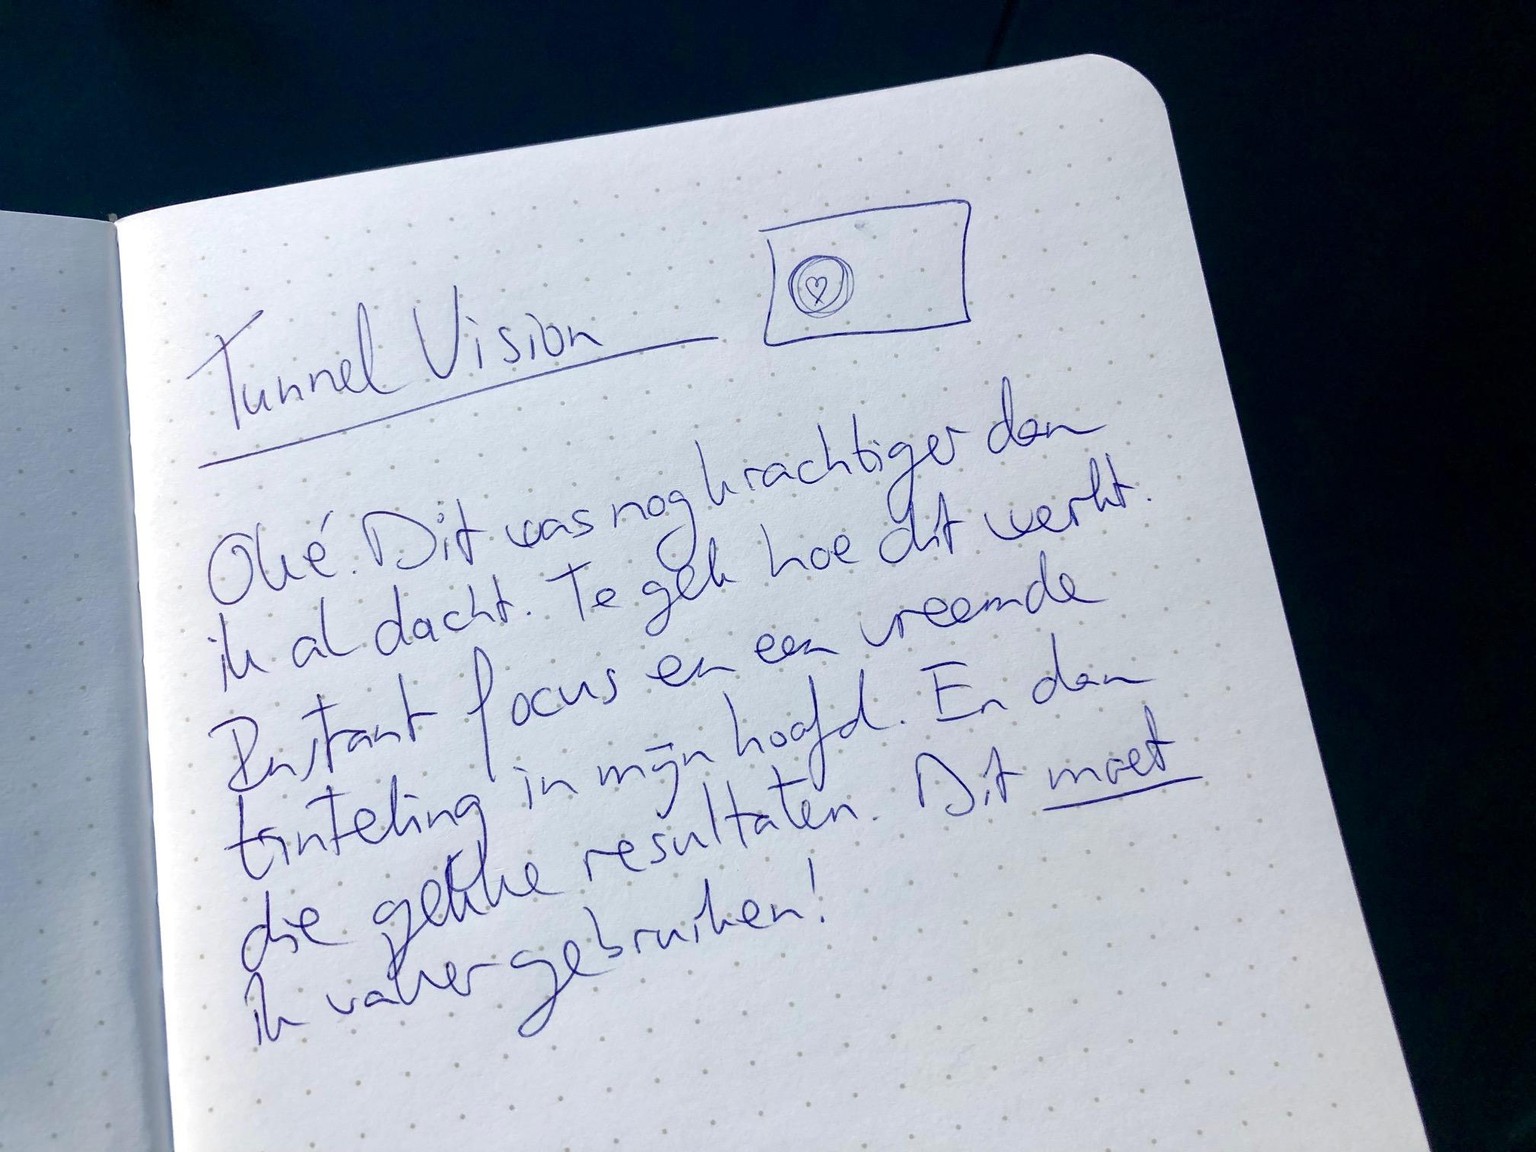 Tunnel Vision
Oké. Dit was nog krachtiger dan
ik al dacht. Te gek hoe dit werkt.
Instant focus en een vreemde
tinteling in mijn hoofd. En dan
die gekke resultaten. Dit moet
ik vaker gebruiken!